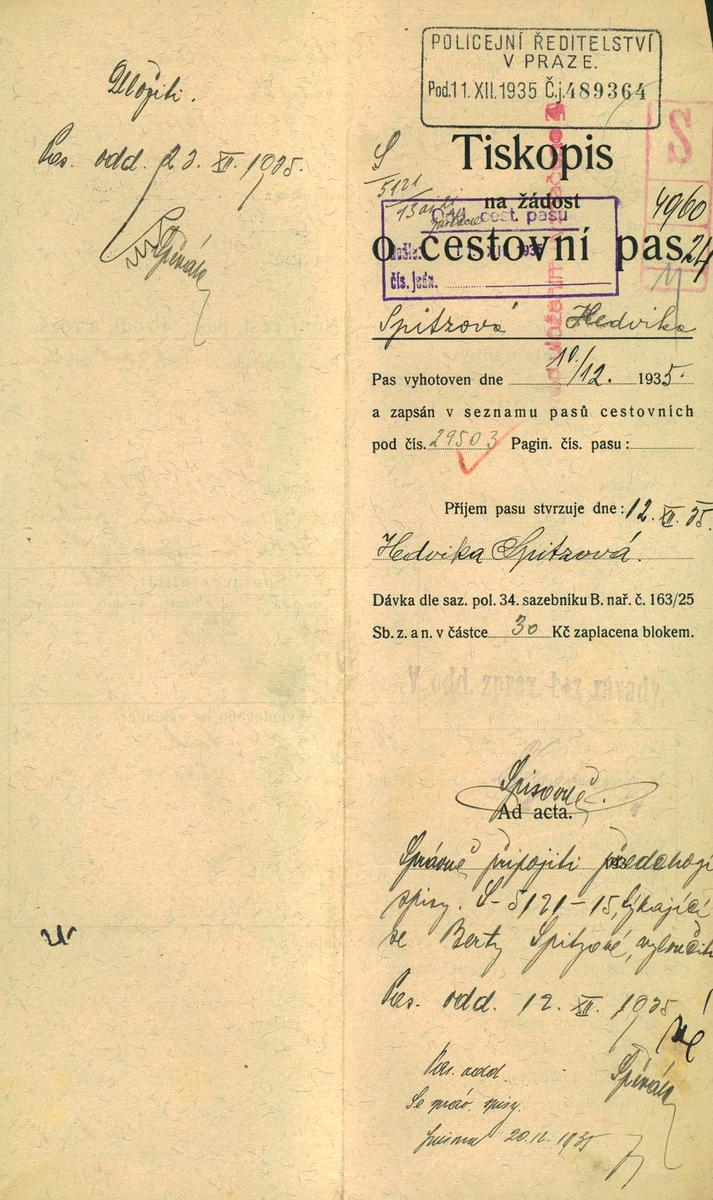 Uložiti.
Pas. odd. 23. XII. 1935.
Spěvák
POLICEJNÍ ŘEDITELSTVÍ
V PRAZE.
Pod. 11. XII. 1935 Č.j. 489364
S
S
5121
13
Tiskopis
na žádost
4960
Odd. cest. pasů
o cestovní pas
24
Došlo:
čís. jedn.
Spitzová Hedvika
Pas vyhotoven dne 10/12. 1935.
a zapsán v seznamu pasů cestovních
pod čís. 29503 Pagin. čís. pasu:
Příjem pasu stvrzuje dne: 12. XII. 35.
Hedvika Spitzová.
Dávka dle saz. pol. 34. sazebníku B. nař. č. 163/25
Sb. z. a n. v částce 30 Kč zaplacena blokem.
V odd. zpráv. bez závady
Spisovně.
Ad acta.
Správně připojiti předchozí
spisy. S-5121-15, týkající
se Berty Spitzové, vyloučiti
Pas. odd. 12. XII. 1935!
Spěvák
Pas. odd.
Se spisy.
20.12. 1935